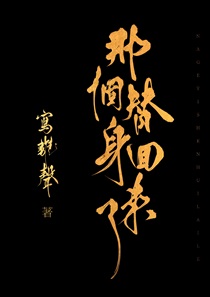 那個替身回來了
寫離聲
著